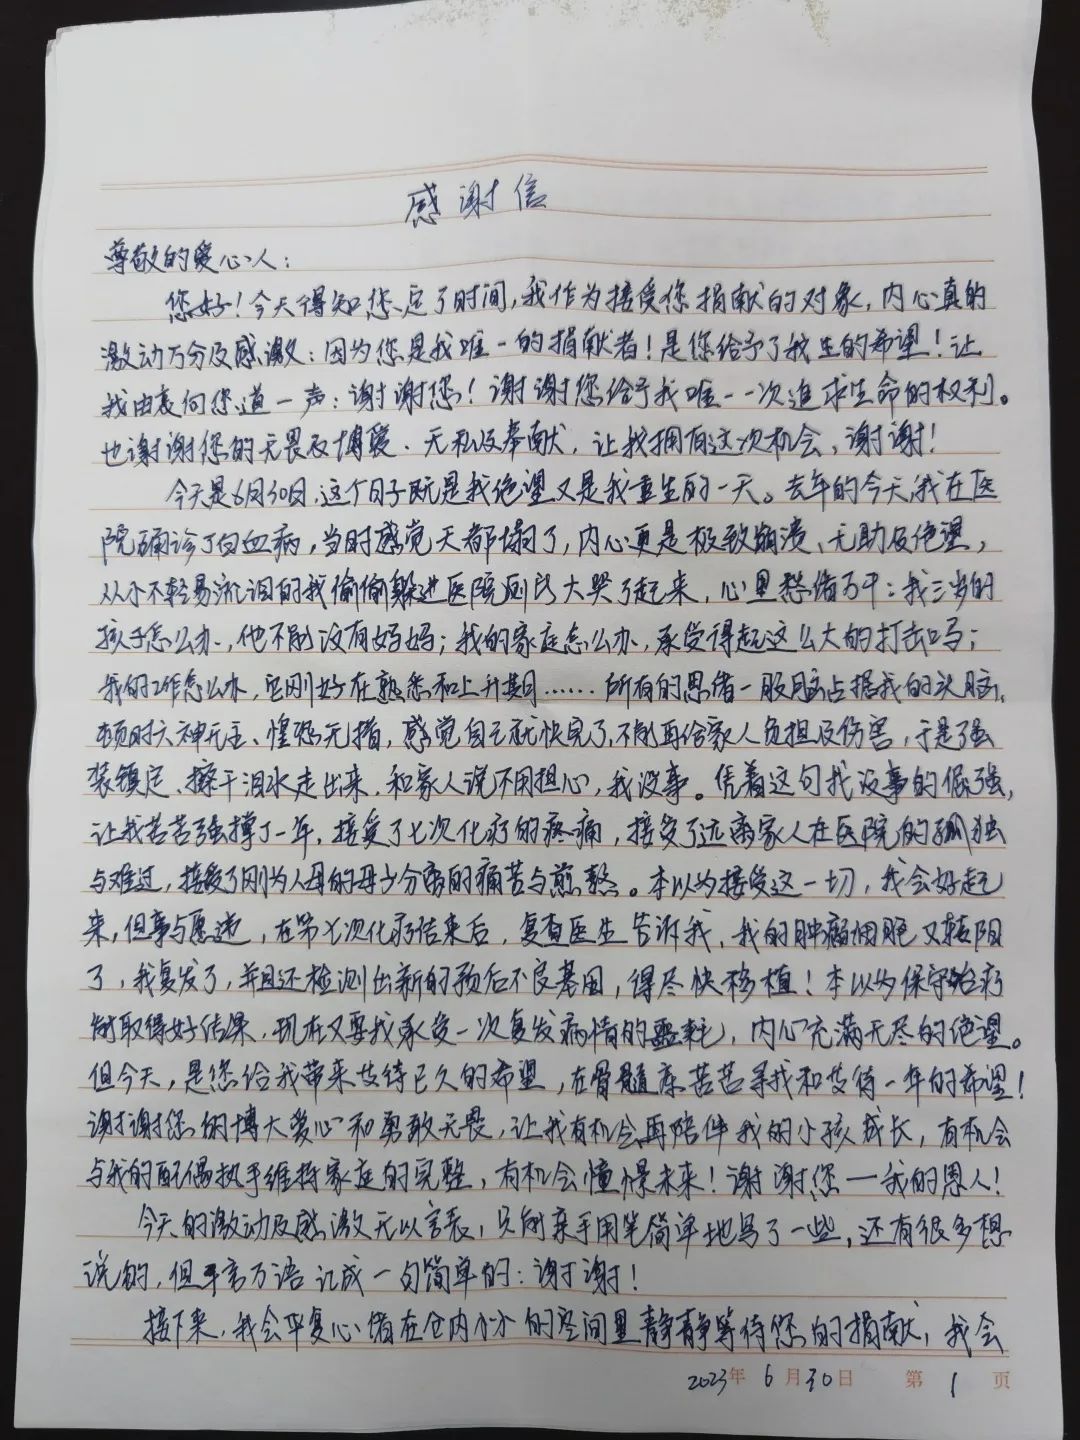 感谢信
尊敬的爱心人：
您好！今天得知您定了时间，我作为接受您捐献的对象，内心真的
激动万分及感激：因为您是我唯一的捐献者！是您给予了我生的希望！让
我由衷向您道一声：谢谢您！谢谢您给予我唯一一次追求生命的权利。
也谢谢您的无畏及博爱、无私及奉献，让我拥有这次机会，谢谢！
今天是6月30日，这个日子既是我绝望又是我重生的一天。去年的今天，我在医
院确诊了白血病，当时感觉天都塌了，内心更是极致崩溃、无助及绝望，
从小不轻易流泪的我偷偷躲进医院厕所大哭了起来，心里愁绪万千：我三岁的
孩子怎么办，他不能没有妈妈；我的家庭怎么办，承受得起这么大的打击吗；
我的工作怎么办，它刚好在熟悉和上升期……所有的思绪一股脑占据我的头脑，
顿时六神无主、惶恐无措，感觉自己就快完了，不能再给家人负担及伤害，于是强
装镇定、擦干泪水走出来，和家人说不用担心，我没事。凭着这句我没事的倔强，
让我苦苦强撑了一年，接受了七次化疗的疼痛，接受了远离家人在医院的孤独
与难过，接受了刚为人母的母子分离的痛苦与煎熬。本以为接受这一切，我会好起
来，但事与愿违，在第七次化疗结束后，复查医生告诉我，我的肿瘤细胞又转阳
了，我复发了，并且还检测出新的预后不良基因，得尽快移植！本以为保守治疗
能取得好结果，现在又要我承受一次复发病情的噩耗，内心充满无尽的绝望。
但今天，是您给我带来期待已久的希望，在骨髓库苦苦寻找和期待一年的希望！
谢谢您的博大爱心和勇敢无畏，让我有机会再陪伴我的小孩成长，有机会
与我的配偶执手维持家庭的完整，有机会憧憬未来！谢谢您——我的恩人！
今天的激动及感激无以言表，只能亲手用笔简单地写了一些，还有很多想
说的，但千言万语汇成一句简单的：谢谢！
接下来，我会平复心绪在仓内小小的空间里静静等待您的捐献，我会
2023年 6月30日 第 1 页